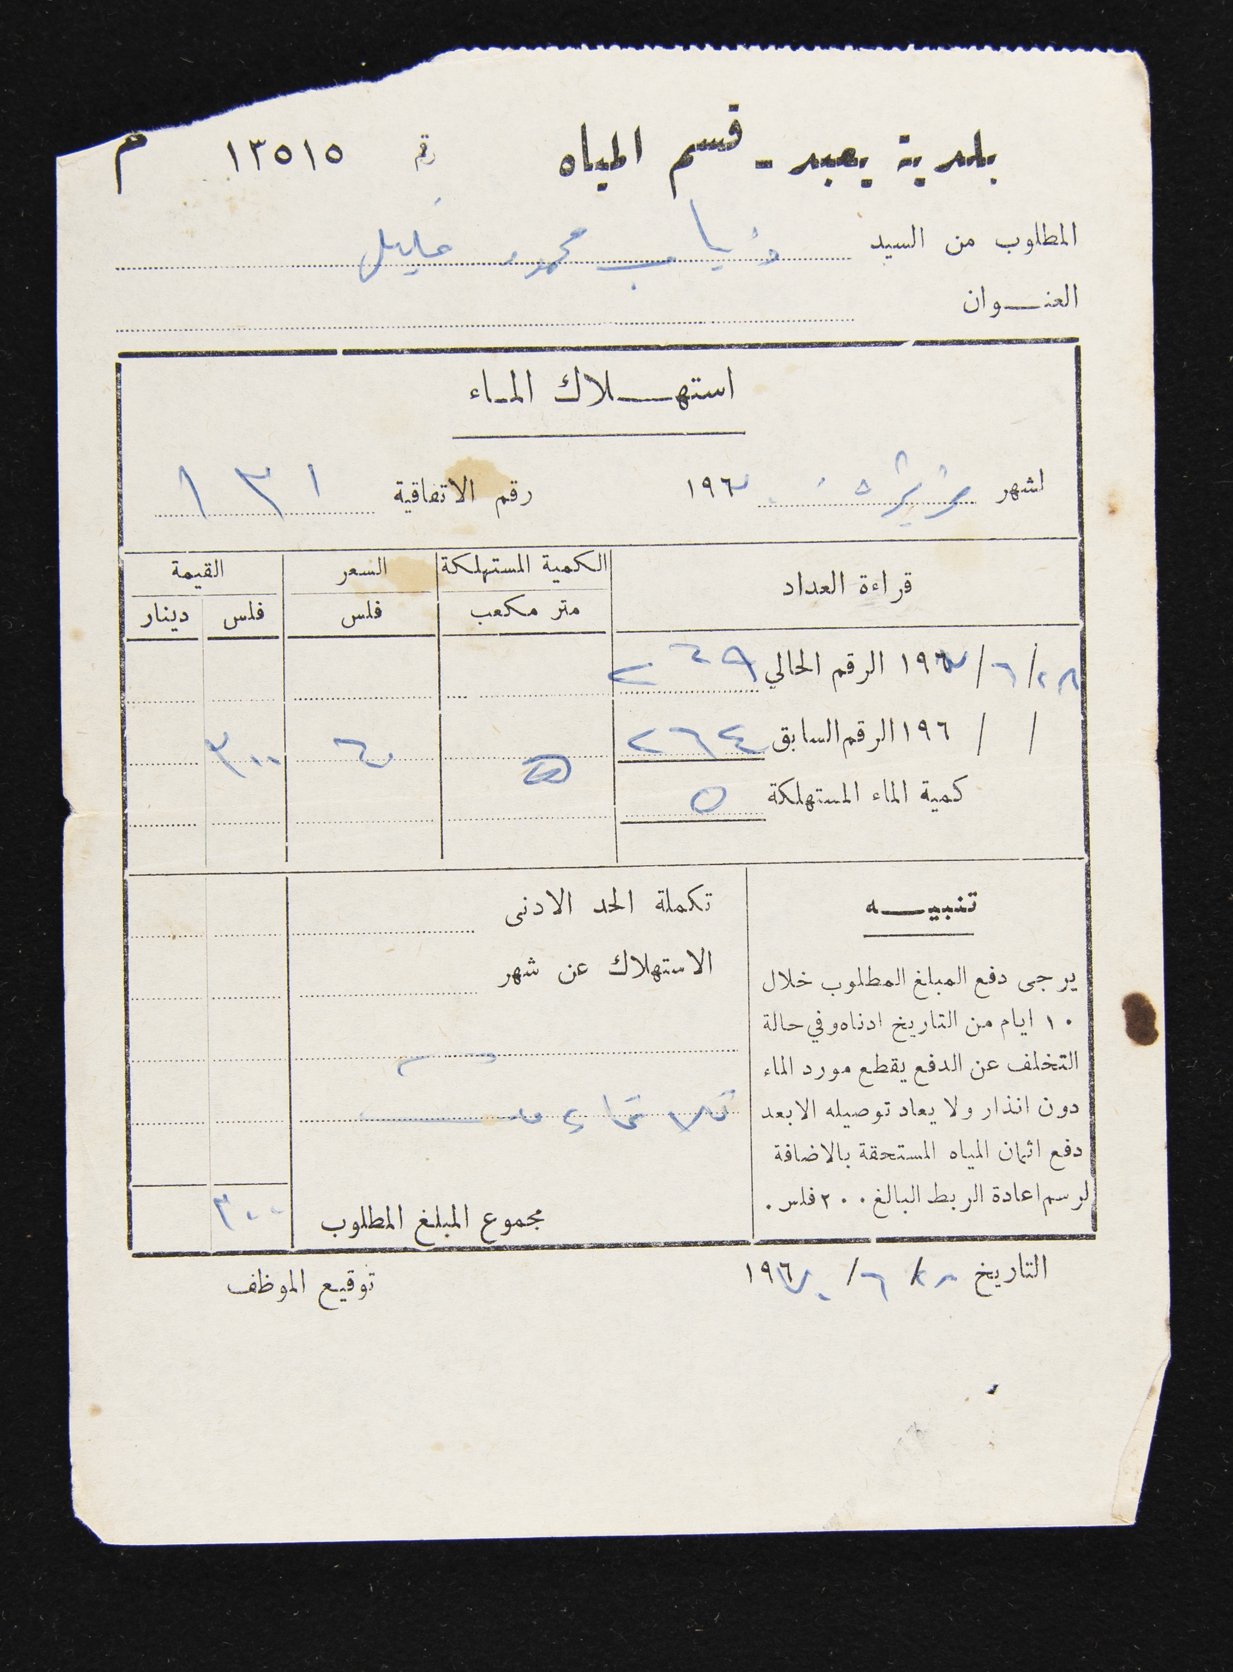 بلدية يعبد - قسم المياه رقم ١٣٥١٥ م
المطلوب من السيد ذياب محمود خليل
العنــوان
استهــلاك المـاء
لشهر ١٩٦ رقم الاتفاقية ١٣١
قراءة العداد الكمية المستهلكة السعر القيمة
متر مكعب فلس فلس دينار
٢٨/ ٦ / ١٩٦ الرقم الحالي ٢٦٩
/ / ١٩٦ الرقم السابق ٢٦٤ ٥ ٦٠ ٣٠٠
كمية الماء المستهلكة ٥
تنبيــه
يرجى دفع المبلغ المطلوب خلال
١٠ ايام من التاريخ ادناه وفي حالة
التخلف عن الدفع يقطع مورد الماء
دون انذار ولا يعاد توصيله الا بعد
دفع اثمان المياه المستحقة بالاضافة
لرسم اعادة الربط البالغ ٢٠٠ فلس .
تكملة الحد الادنى
الاستهلاك عن شهر
مجموع المبلغ المطلوب ٣٠٠
التاريخ ٢٨ / ٦ / ١٩٦
توقيع الموظف